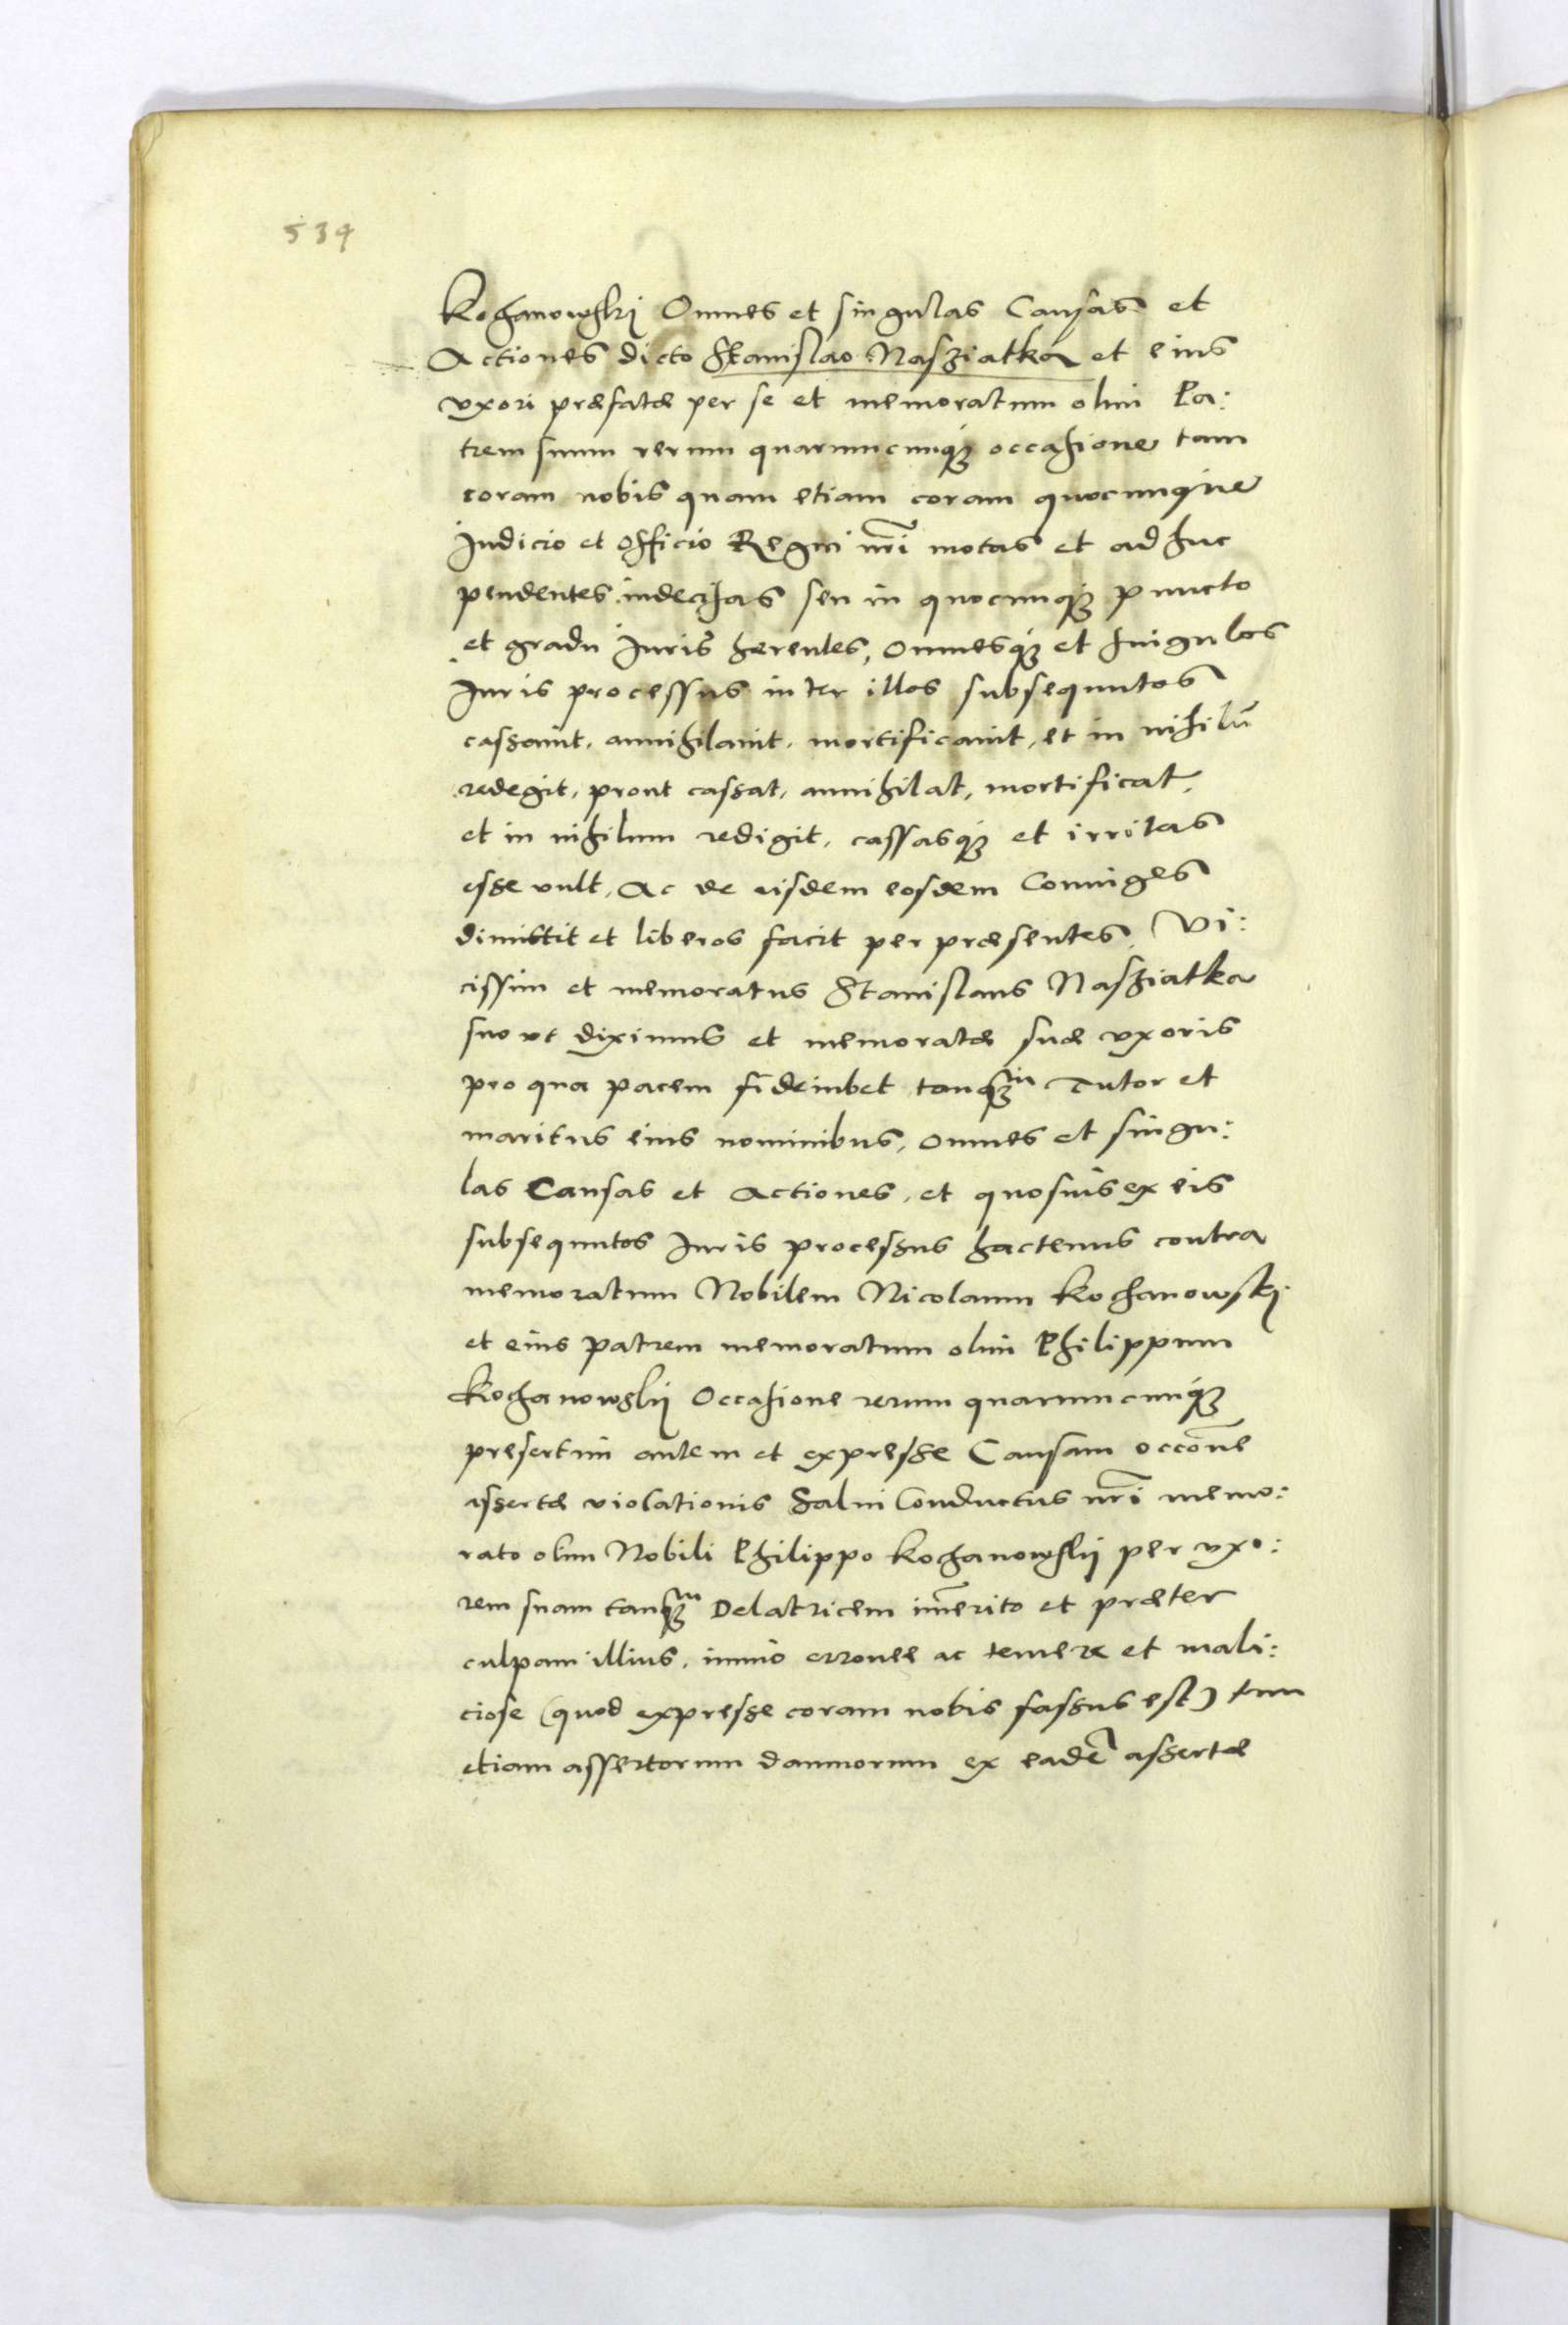 534
Kochanowski Omnes et singulas Causas et
Actiones dicto Stanislao Nasziatka et eius
uxori præfatæ per se et memoratum olim Pa:
trem suum rerum quarumcunq3 occasione tam
coram nobis quam etiam coram quocunque
Judicio et Officio Regni nr̃i motas et adhuc
pendentes indecisas seu in quocunq3 puncto
et gradu Juris herentes, omnesq3 et singulos
Juris processus inter illos subsequutos
cassauit, annihilauit, mortificauit, et in nihilũ
redegit, prout cassat, annihilat, mortificat,
et in nihilum redigit, cassasq3 et irritas
esse vult, Ac de eisdem eosdem Coniuges
dimittit et liberos facit per præsentes. Vi:
cissim et memoratus Stanislaus Nasziatka
suo vt diximus et memoratæ suæ uxoris
pro qua pacem fideiubet tanq3m Tutor et
maritus eius nominibus, omnes et singu:
las Causas et Actiones, et quosuis ex eis
subsequutos Juris processus hactenus contra
memoratum Nobilem Nicolaum Kochanowskj
et eius patrem memoratum olim Philippum
Kochanowskij Occasione rerum quarumcunq3
presertim autem et expresse Causam occõne
assertæ violationis Salui Conductus nr̃i memo:
rato olim Nobili Philippo Kochanowskij per uxo:
rem suam tanq3m Delatricem im̃erito et præter
culpam illius, immo erronee ac temere et mali:
ciose (quod expresse coram nobis fassus est) tum
etiam assertorum damnorum ex eadẽ assertæ